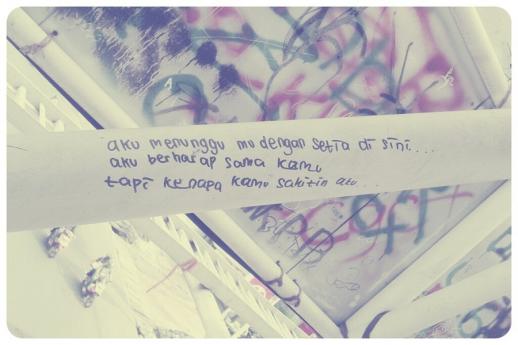 aku menunggu mu dengan setia di sini...
aku berharap sama kamu
tapi kenapa kamu sakitin aku...